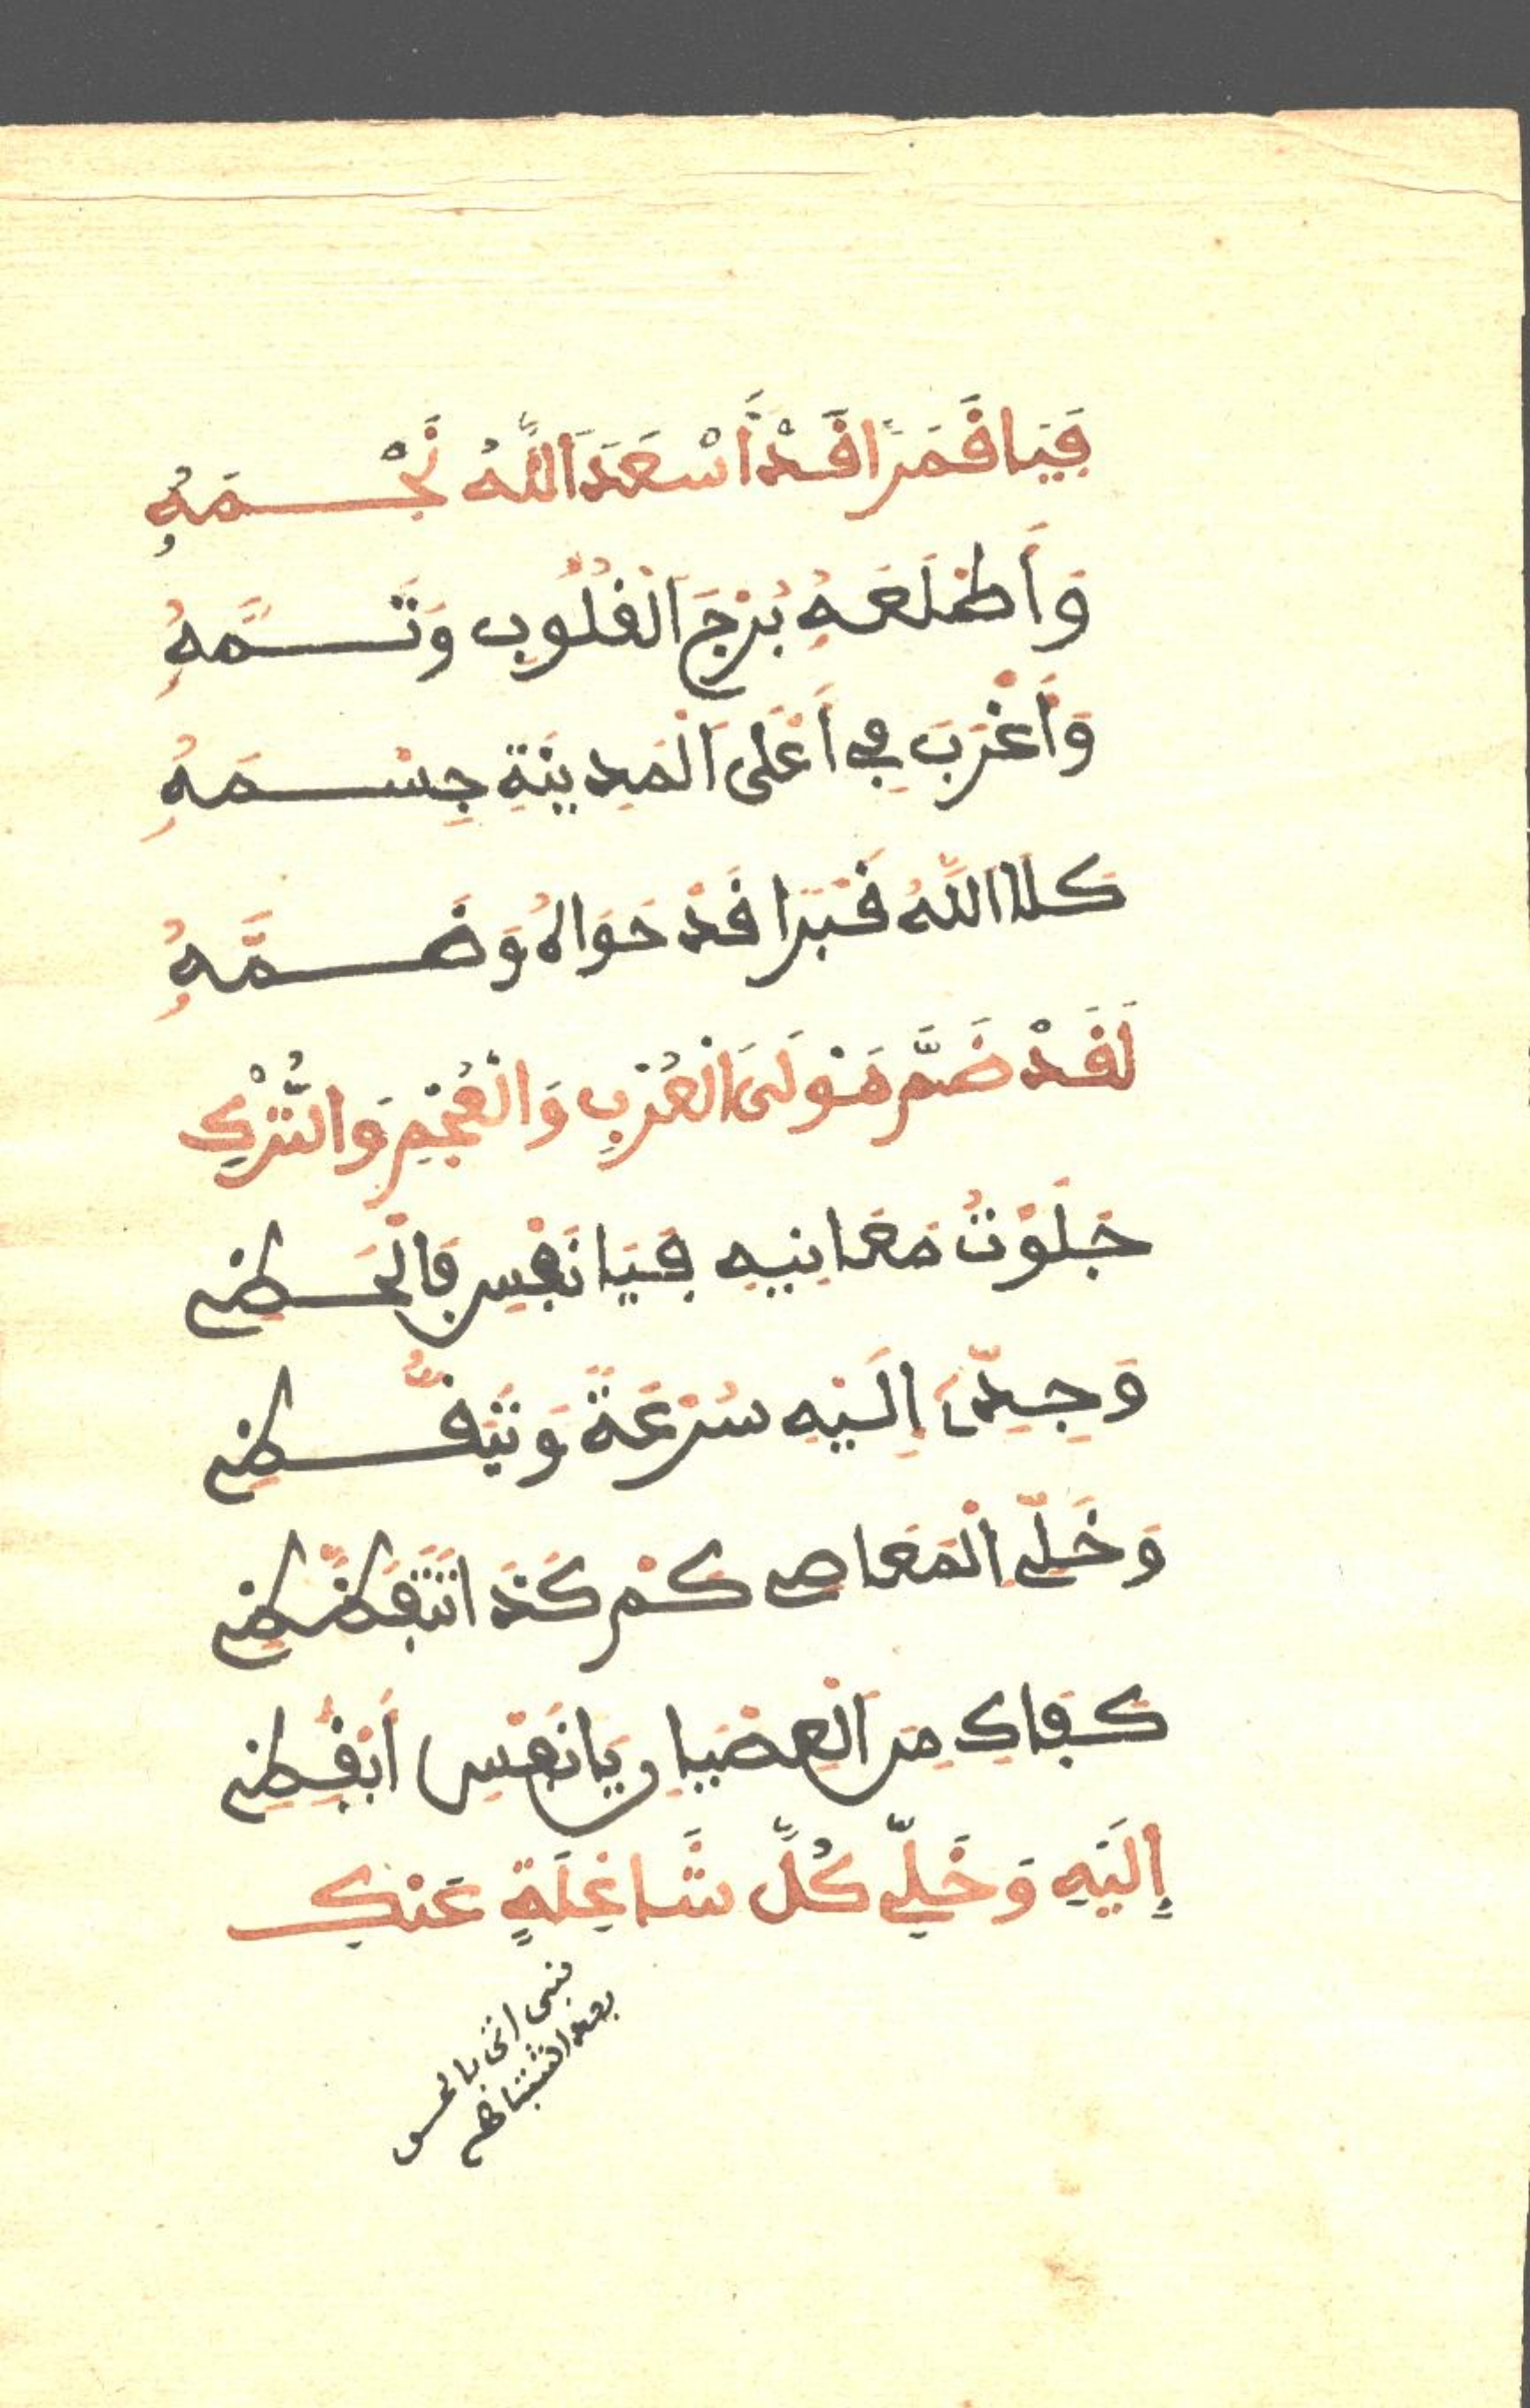 فَيَا قَمَرًا قَدْ أَسْعَدَ اَللَّهُ نَجْمَهُ
وَأَطْلَعَهُ بُرْجَ اَلْقُلُوبِ وَتَمَّهُ
وَأَغْرَبَ فِي أَعْلَى اَلْمَدِينَةِ جِسْمَهُ
كَلَا اَللَّهُ قَبْرًا قَدْ حَوَاهُ وَضَمَّهُ
لَقَدْ ضَمَّ مَوْلَى اَلْعُرْبِ وَالْعُجْمِ وَالتُّرْكِ
جَلَوْتُ مَعَانِيهِ فَيَا نَفْسِ فَالْحَظِي
وَجِدِّي إِلَيْهِ سُرْعَةً وَتَيَقَّظِي
وَخَلِّي اَلْمَعَاصِي كَمْ كَذَا تَتَفَظَّظِي
كَفَاكِ مِنَ اَلْعِصْيَانِ يَا نَفْسِ أَيْقِظِي
إِلَيْهِ وَخَلِّي كُلَّ شَاغِلَةٍ عَنْكِ
نبي اتى
بعد